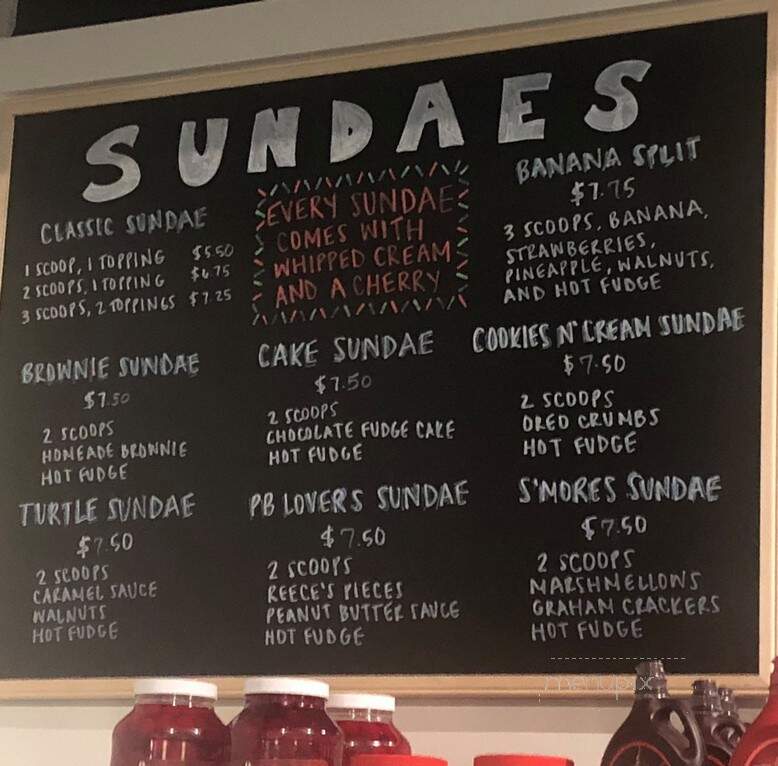 SUNDAES
CLASSIC SUNDAE
1 SCOOP, 1 TOPPING $5.50
2 SCOOPS, 1 TOPPING $6.75
3 SCOOPS, 2 TOPPINGS $7.25
EVERY SUNDAE
COMES WITH
WHIPPED CREAM
AND A CHERRY
BANANA SPLIT
$7.75
3 SCOOPS, BANANA,
STRAWBERRIES,
PINEAPPLE, WALNUTS,
AND HOT FUDGE
BROWNIE SUNDAE
$7.50
2 SCOOPS
HOMEADE BROWNIE
HOT FUDGE
CAKE SUNDAE
$7.50
2 SCOOPS
CHOCOLATE FUDGE CAKE
HOT FUDGE
COOKIES N' CREAM SUNDAE
$7.50
2 SCOOPS
OREO CRUMBS
HOT FUDGE
TURTLE SUNDAE
$7.50
2 SCOOPS
CARAMEL SAUCE
WALNUTS
HOT FUDGE
PB LOVERS SUNDAE
$7.50
2 SCOOPS
REECE'S PIECES
PEANUT BUTTER SAUCE
HOT FUDGE
S'MORES SUNDAE
$7.50
2 SCOOPS
MARSHMELLOWS
GRAHAM CRACKERS
HOT FUDGE
menupix